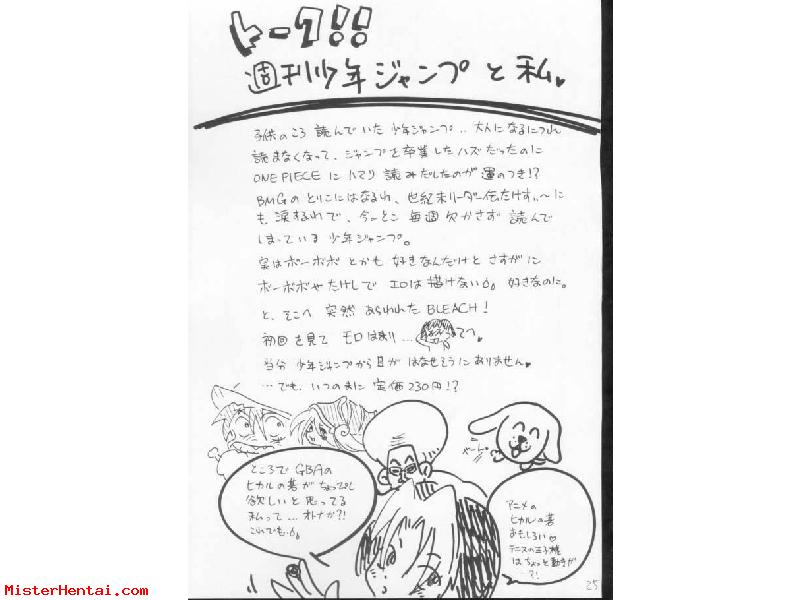 トーク!!
週刊少年ジャンプと私♥
子供のころ 読んでいた 少年ジャンプ... 大人になるにつれ
読まなくなって、ジャンプを卒業したハズだったのに
ONE PIECE に ハマリ 読みだしたのが 運のつき!?
BMGの とりこにはなるわ、世紀末リーダー伝たけすぃ〜に
も 涙するわで、今んとこ 毎週 欠かさず 読んで
しまっている 少年ジャンプ。
実はボーボボ とかも 好きなんだけど さすがに
ボーボボやたけしで エロは描けない 好きなのに。
と、そこへ 突然 あらわれた BLEACH!
初回を見て モロはまり...
当分 少年ジャンプから目が はなせそうにありません♥
...でも、いつのまに 定価230円!?
ところで GBAの
ヒカルの碁が ちょっぴし
欲しいと 思ってる
私って... オトナか?!
これでも
アニメの
ヒカルの碁
おもしろい♡
テニスの王子様
はちょっと動きが
?!
25
MisterHentai.com